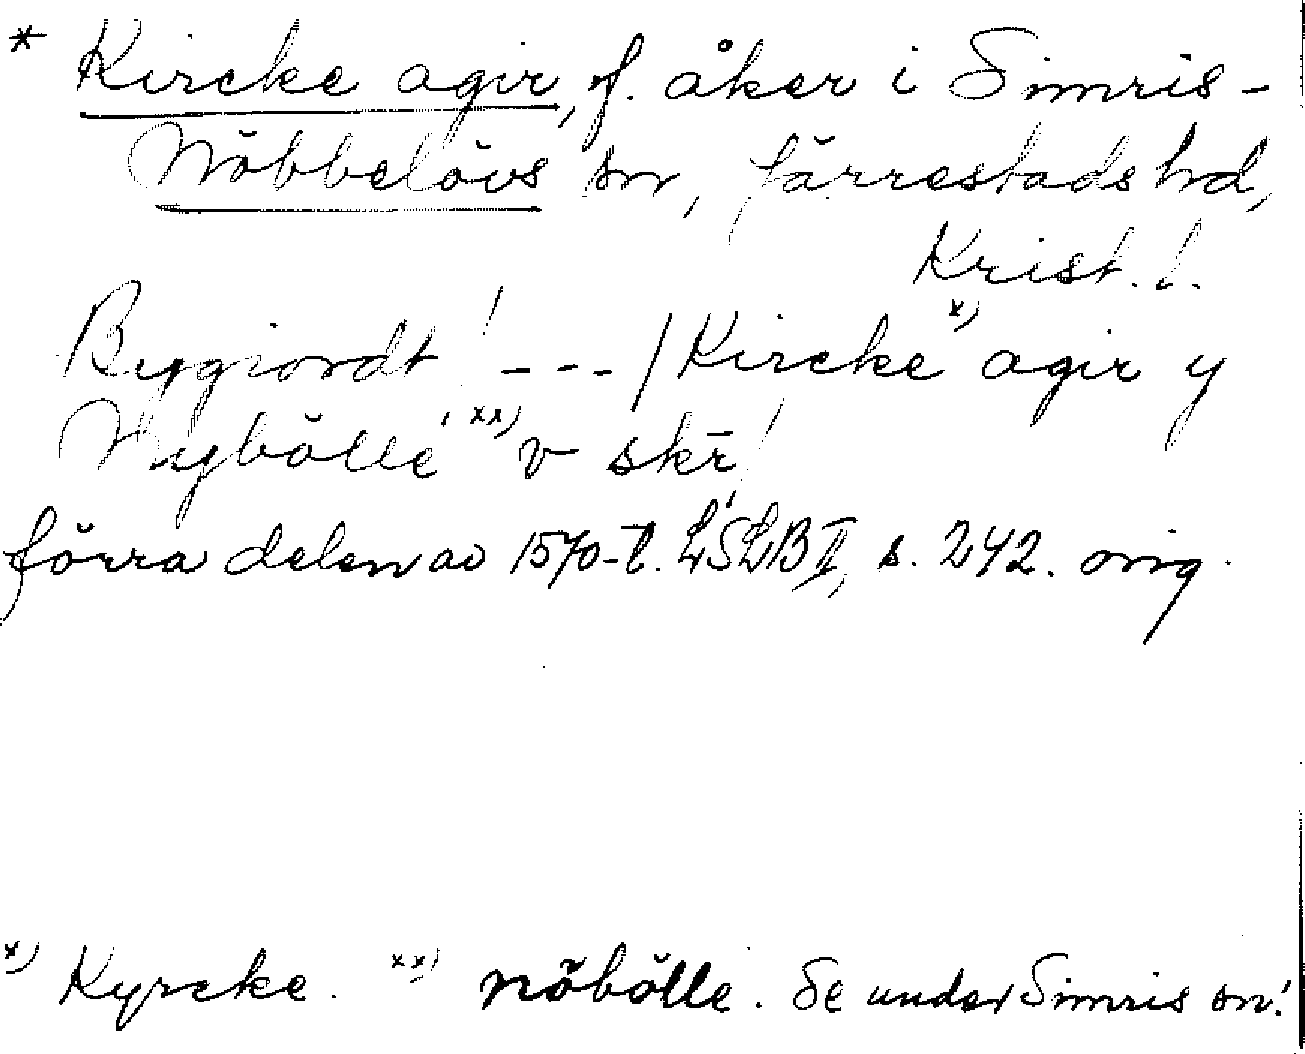 * Kircke agir, f. åker i Simris-
Nöbbelövs sn, Järrestads hd,
Krist. l.
Bygiordt / --- / Kircke x) agir y
Nybölle xx) v skr /
förra delen av 1570-t. LSLB II, s. 242. orig.
x) Kyrcke. xx) nöbölle. Se under Simris sn!